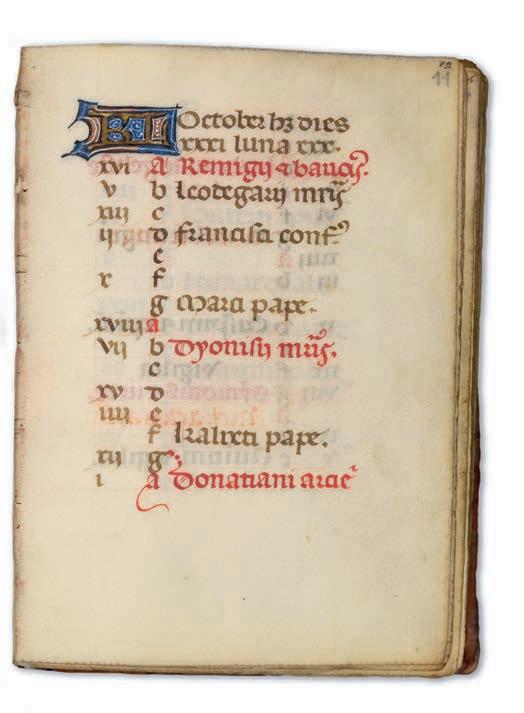 11
KL October hȝ dies
xxxi luna xxx.
xvi A Remigii ⁊ bauoĩs.
v b Leodegarii mr̃is
xiii c
ii d Francisci conf.
e
x f
g Marci pape.
xviii A
vii b Dyonisii mr̃is.
c
xv d
iiii e
f Kalixti pape.
xii g
i A Donatiani arcie